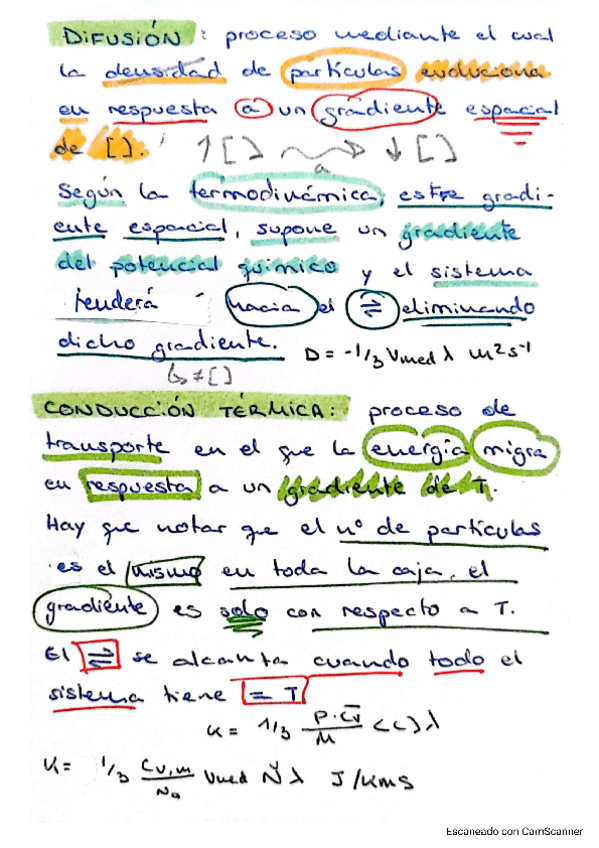 DIFUSIÓN: proceso mediante el cual
la densidad de partículas evoluciona
en respuesta a un gradiente espacial
de [ ]. ↑[ ] → ↓[ ]
a
Según la termodinámica, este gradi-
ente espacial, supone un gradiente
del potencial químico y el sistema
tenderá hacia el ⇌ eliminando
dicho gradiente. D = -1/3 Vmed λ m²s⁻¹
↳ ≠ [ ]
CONDUCCIÓN TÉRMICA: proceso de
transporte en el que la energía migra
en respuesta a un gradiente de T.
Hay que notar que el nº de partículas
es el mismo en toda la caja, el
gradiente es solo con respecto a T.
El ⇌ se alcanza cuando todo el
sistema tiene = T
κ = 1/3 ρ·C̅v/M <c> λ
κ = 1/3 Cv,m/Na Vmed Ñ λ J/Kms
Escaneado con CamScanner